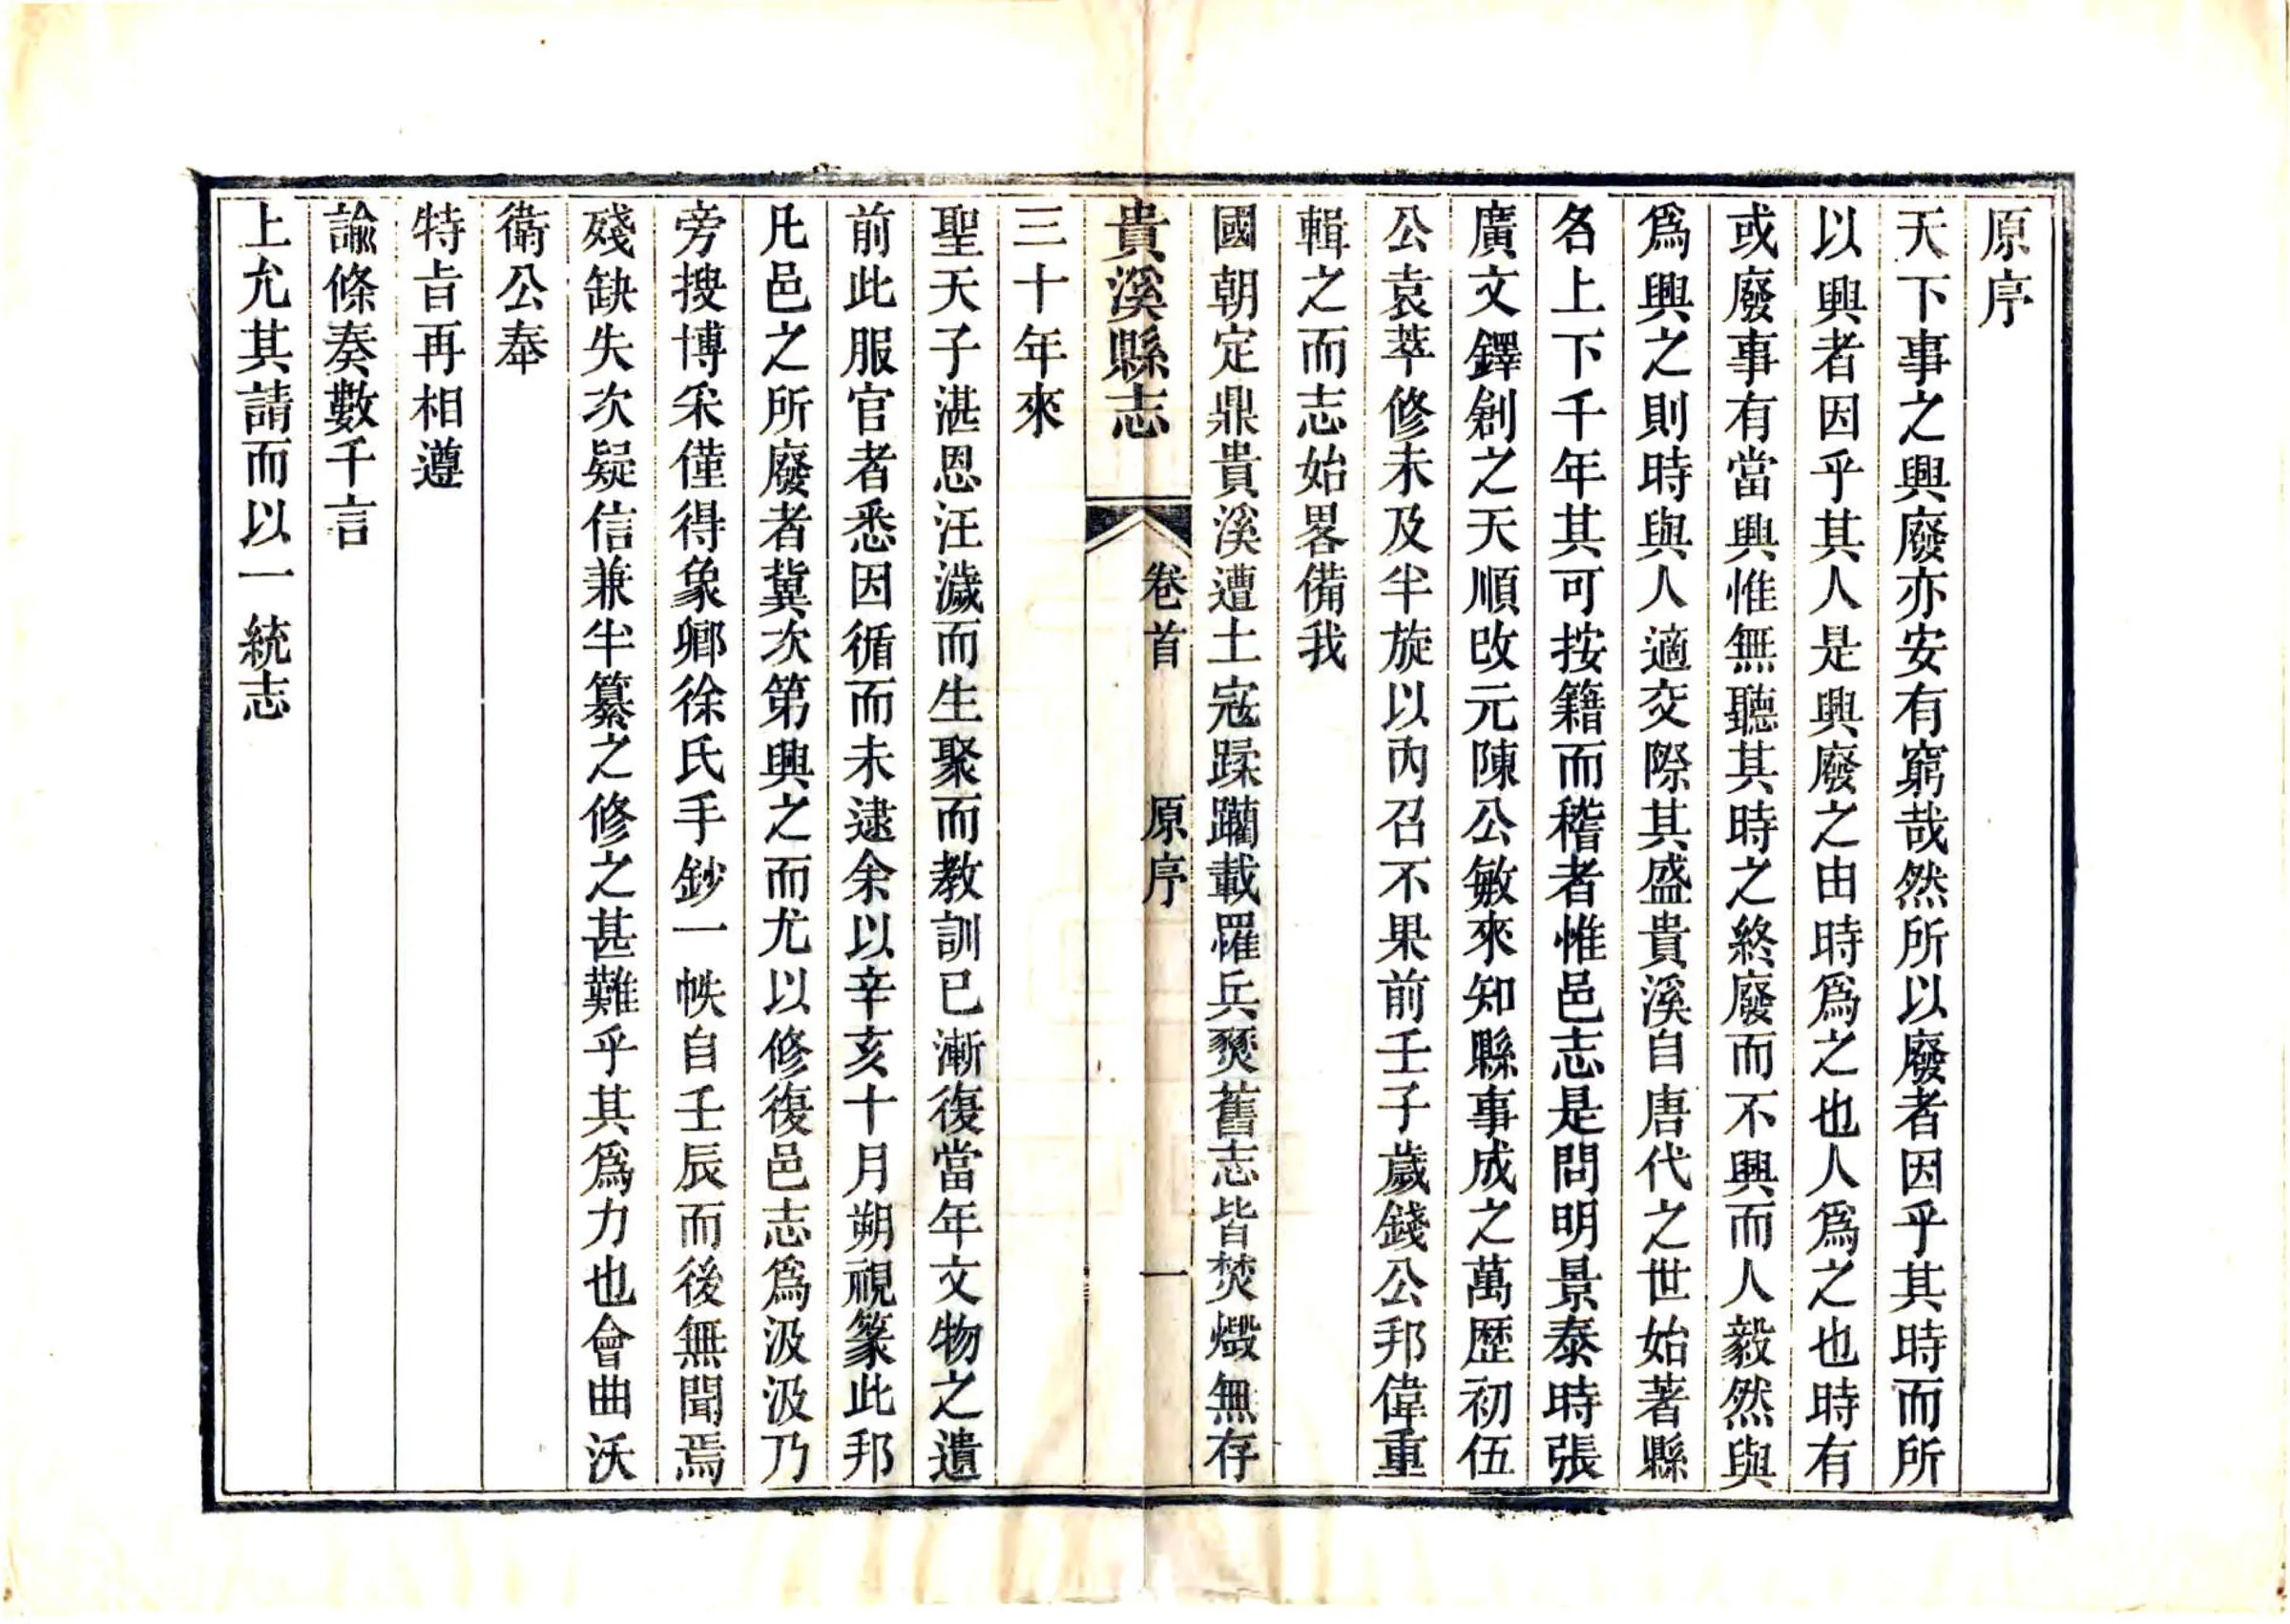 原序
天下事之興廢亦安有窮哉然所以廢者因乎其時而所
以興者因乎其人是興廢之由時爲之也人爲之也時有
或廢事有當興惟無聽其時之終廢而不興而人毅然與
爲興之則時與人適交際其盛貴溪自唐代之世始著縣
各上下千年其可按籍而稽者惟邑志是問明景泰時張
廣文鐸創之天順改元陳公敏來知縣事成之萬歷初伍
公袁萃修未及半旋以內召不果前壬子歲錢公邦偉重
輯之而志始畧備我
國朝定鼎貴溪遭土寇蹂躪載罹兵燹舊志皆焚燬無存
貴溪縣志
卷首
原序
一
三十年來
聖天子湛恩汪濊而生聚而教訓已漸復當年文物之遺
前此服官者悉因循而未逮余以辛亥十月朔視篆此邦
凡邑之所廢者冀次第興之而尤以修復邑志爲汲汲乃
旁搜博采僅得象鄉徐氏手鈔一帙自壬辰而後無聞焉
殘缺失次疑信兼半纂之修之甚難乎其爲力也會曲沃
衞公奉
特旨再相遵
諭條奏數千言
上允其請而以一統志